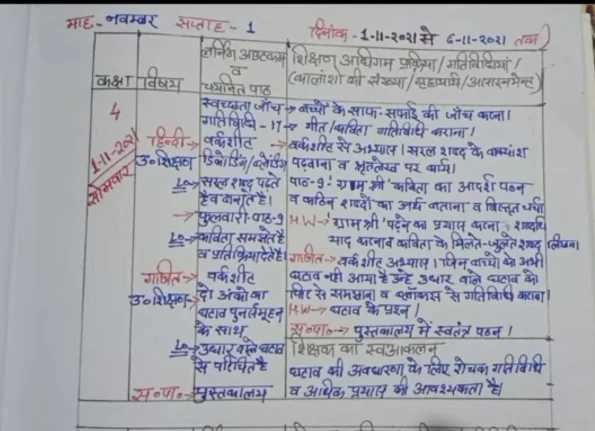 माह - नवम्बर सप्ताह - 1 दिनांक - 1-11-2021 से 6-11-2021 तक
कक्षा विषय लर्निंग आउटकम व चयनित पाठ
शिक्षण अधिगम प्रक्रिया / गतिविधियां /
(कालांशों की संख्या / गृहकार्य /
4
1-11-2021
सोमवार
स्वच्छता जाँच → बच्चों के साफ-सफाई की जाँच करना।
गतिविधि - 17 → गीत / कविता गतिविधि कराना।
हिन्दी → वर्कशीट → वर्कशीट से अभ्यास। सरल शब्द के वाक्यांश
उ०शिक्षण डिकोडिंग / पढ़वाना व श्रुतलेख पर कार्य।
L.O → सरल शब्द पढ़ते पाठ-9 'ग्राम श्री' कविता का आदर्श पठन
है व बनाते हैं। व कठिन शब्दों का अर्थ बताना व विस्तृत चर्चा
→ फुलवारी-पाठ-9 H.W → 'ग्राम श्री' पढ़ने का प्रयास करना, शब्दार्थ
L.O → कविता समझते है याद करना व कविता के मिलते-जुलते शब्द लिखना
व प्रतिक्रिया देते है। गणित → वर्कशीट अभ्यास। जिन बच्चों को अभी
गणित → वर्कशीट घटाव नही आया है उन्हे उधार वाले घटाव को
उ०शिक्षण दो अंकों का फिर से समझाना व ब्लॉकस से गतिविधि कराना।
घटाव पुनर्समूहन H.W → घटाव के प्रश्न।
के साथ स०पा० → पुस्तकालय में स्वतंत्र पठन।
L.O → उधार वाले घटाव शिक्षक का स्वआकलन
से परिचित है घटाव की अवधारणा के लिए रोचक गतिविधि
स०पा० → पुस्तकालय व अधिक प्रयास की आवश्यकता है।